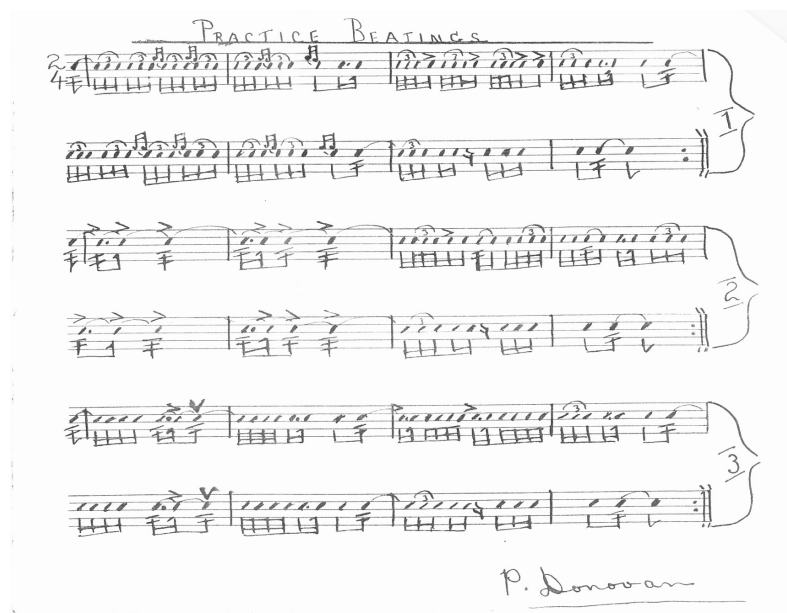 PRACTICE BEATINGS
2
4
1
2
3
P. Donovan